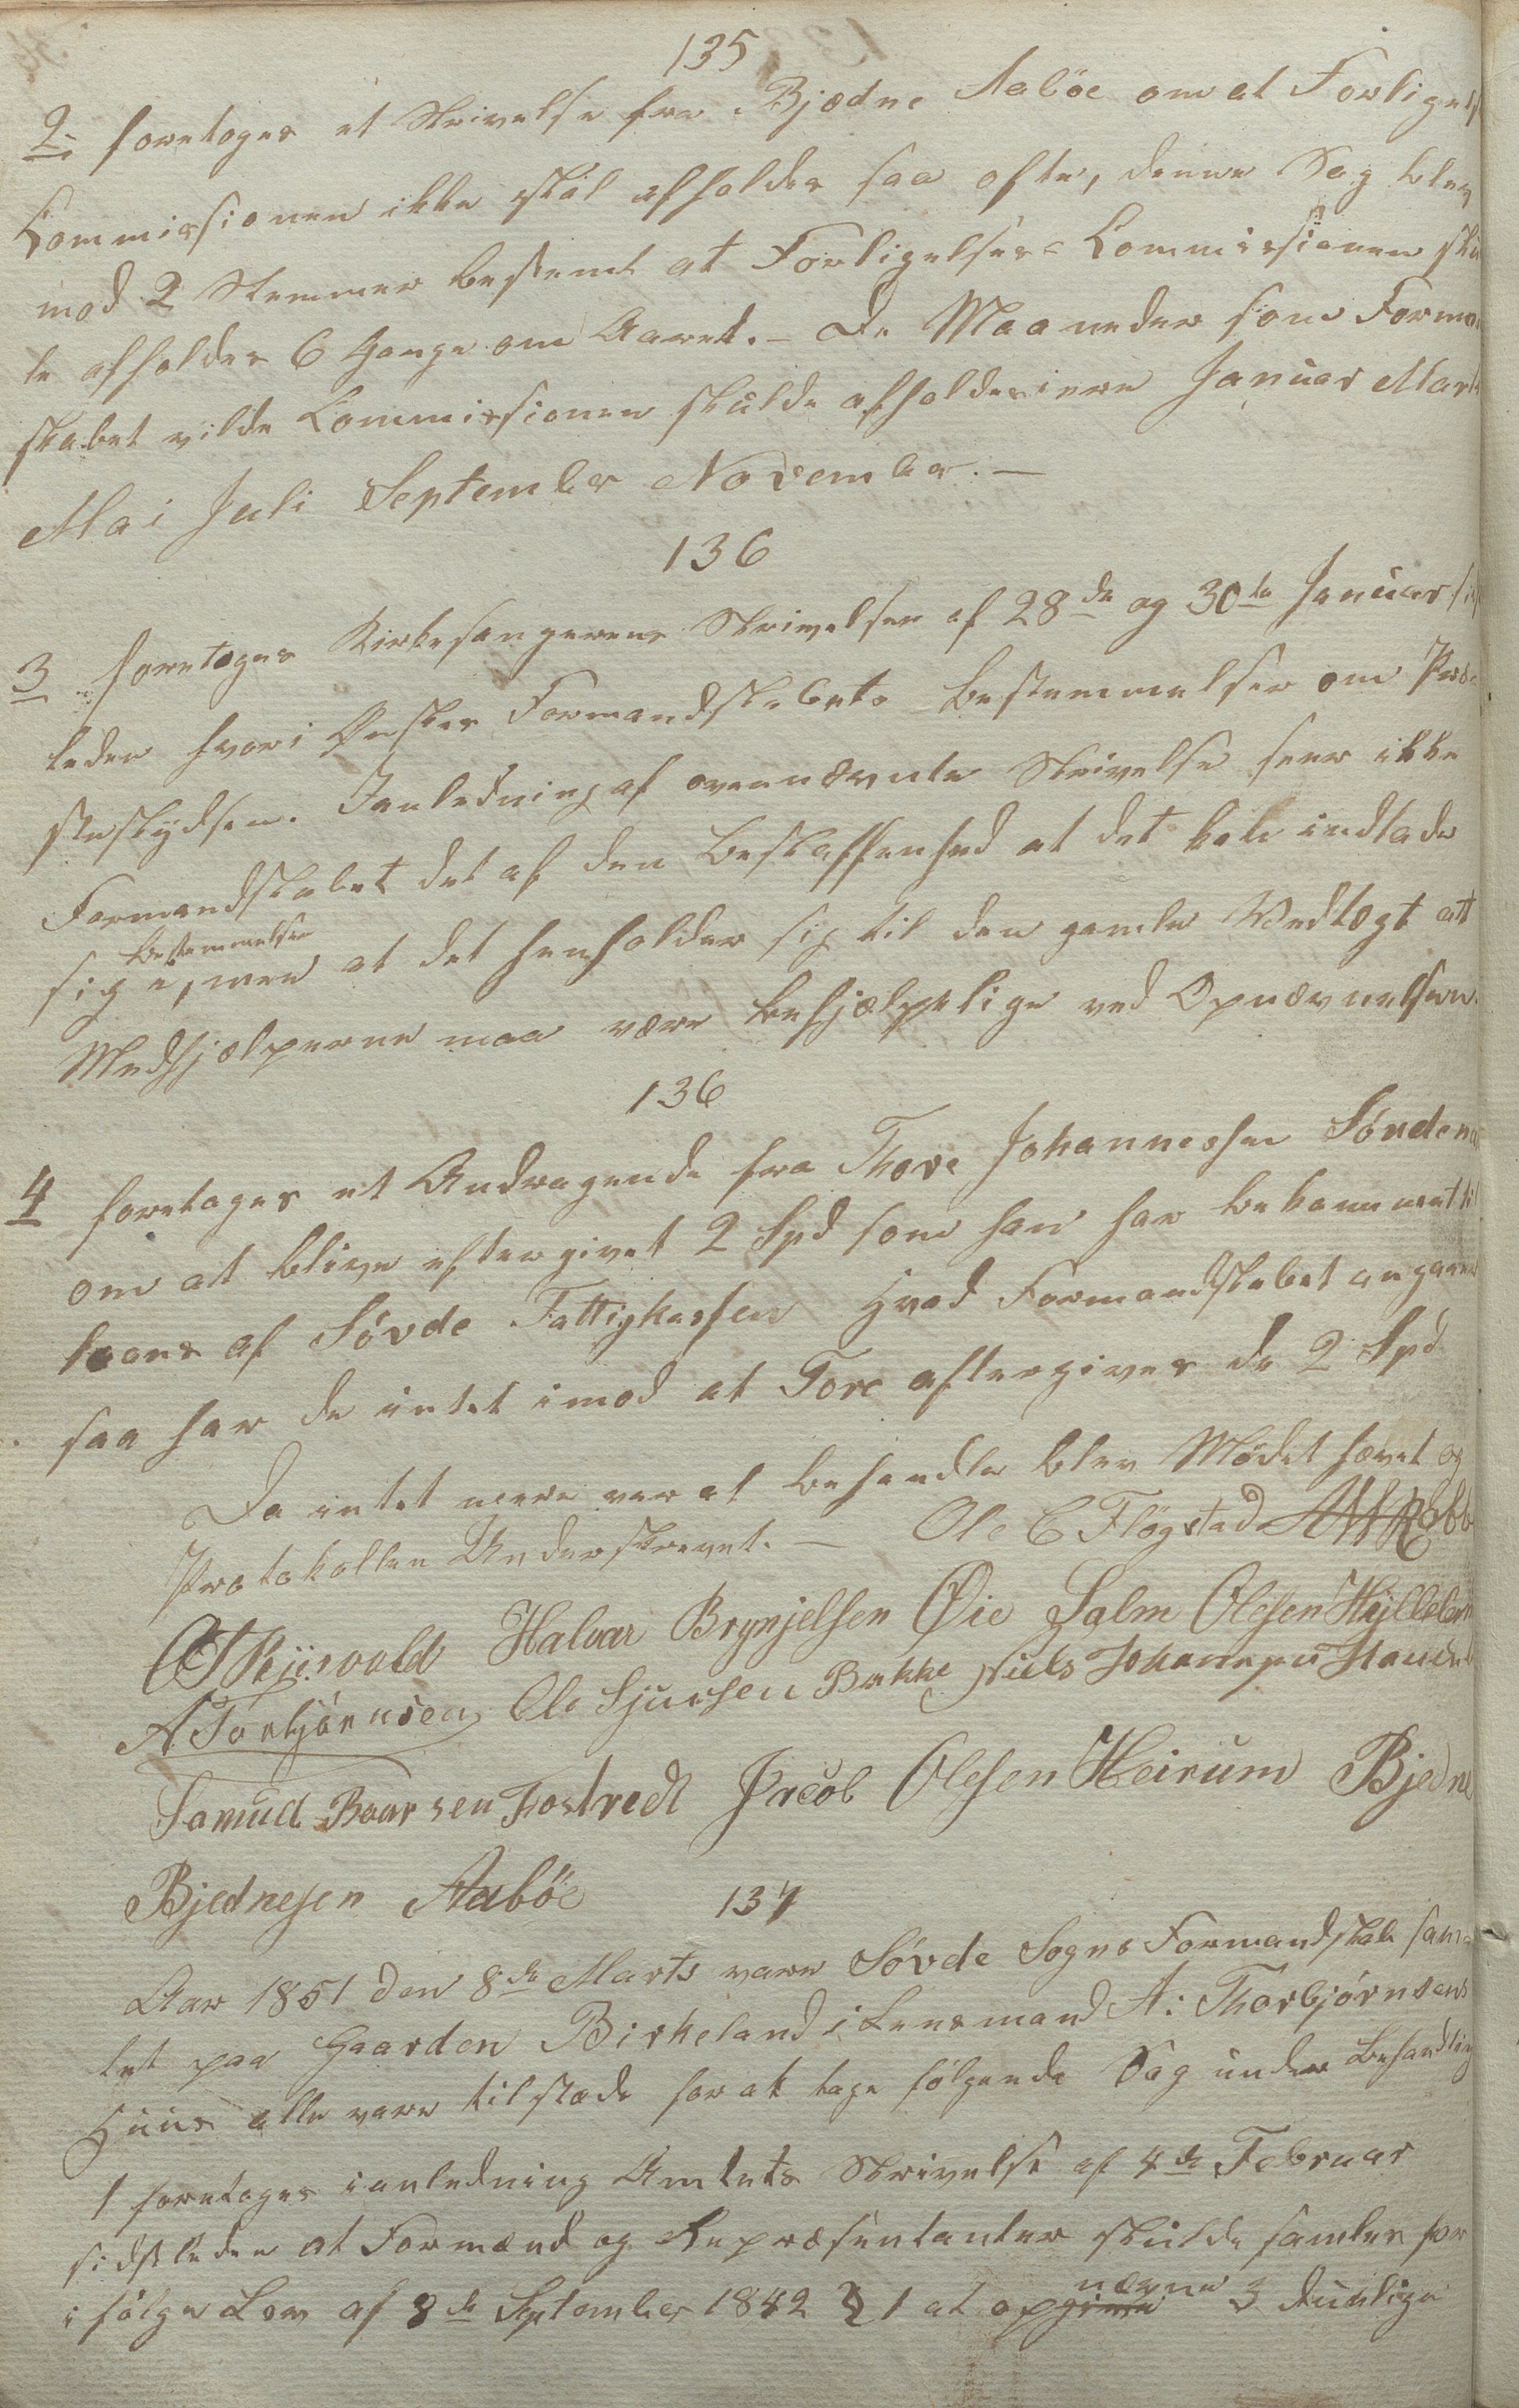 135
2. foretoges et Skrivelse fra Bjødne Aabøe om at Forligels
Commissionen ikke skal afholdes saa ofte, denne Sag blev
mod 2 Stemmer bestemt at Forligelses-Commissionen skul
le afholdes 6 Gange om Aaret. - De Maaneder som Forman
skabet vilde Commissionen skulde afholdes i ere Januar Marts
Mai Juli September November. -
136
3. foretoges Kirkesangerens Skrivelser af 28de og 30te Januar sidst
leden hvori Ønskes Formandskabets bestemmelser om Præ-
steskydsen. Ianledning af ovennævnte Skrivelse seer ikke
Formandskabet det af den Beskaffenhed at det kan indlade
bestemmelser
sig i, men at det henholder sig til den gamle Vedtegt att
Medhjelperne maa være behjælpelige ved Opnævnelsen.
136
4 foretoges et Andragende fra Thore Johannessen Søvdena
om at blive eftergivet 2 Spd som han har bekommet til
laans af Søvde Fattigkassen Hvad Formandskabet angaaer
saa har de intet imod at Tore eftergives de 2 Spd
Da intet mere var at behandle blev Mødet hævet og
Protokollen Underskrevet. - Ole C Fløgstad
Halvar Brynjelsen Øie Salm Olesen Hylleland
A Torbjörnsen Ole Sjursen Bakke Niels Johanesen
Samuel Baarsen Fostredt Jacob Olesen Heirum Bjedne
Bjednesen Aabøe
137
Aar 1851 den 8de Marts vare Søvde Sogns Formandskab sam-
let paa Gaarden Birkeland i Lensmand A: Thorbjørnsens
Huus alle vare tilstæde for at tage følgende Sag under Behandling
1 foretoges ianledning Amtets Skrivelse af 4de Februar
sidstleden at Formænd og Repræsentanter skulde samles for
nævne
ifølge Lov af 8de September 1842 § 1 at opgive 3 duelige